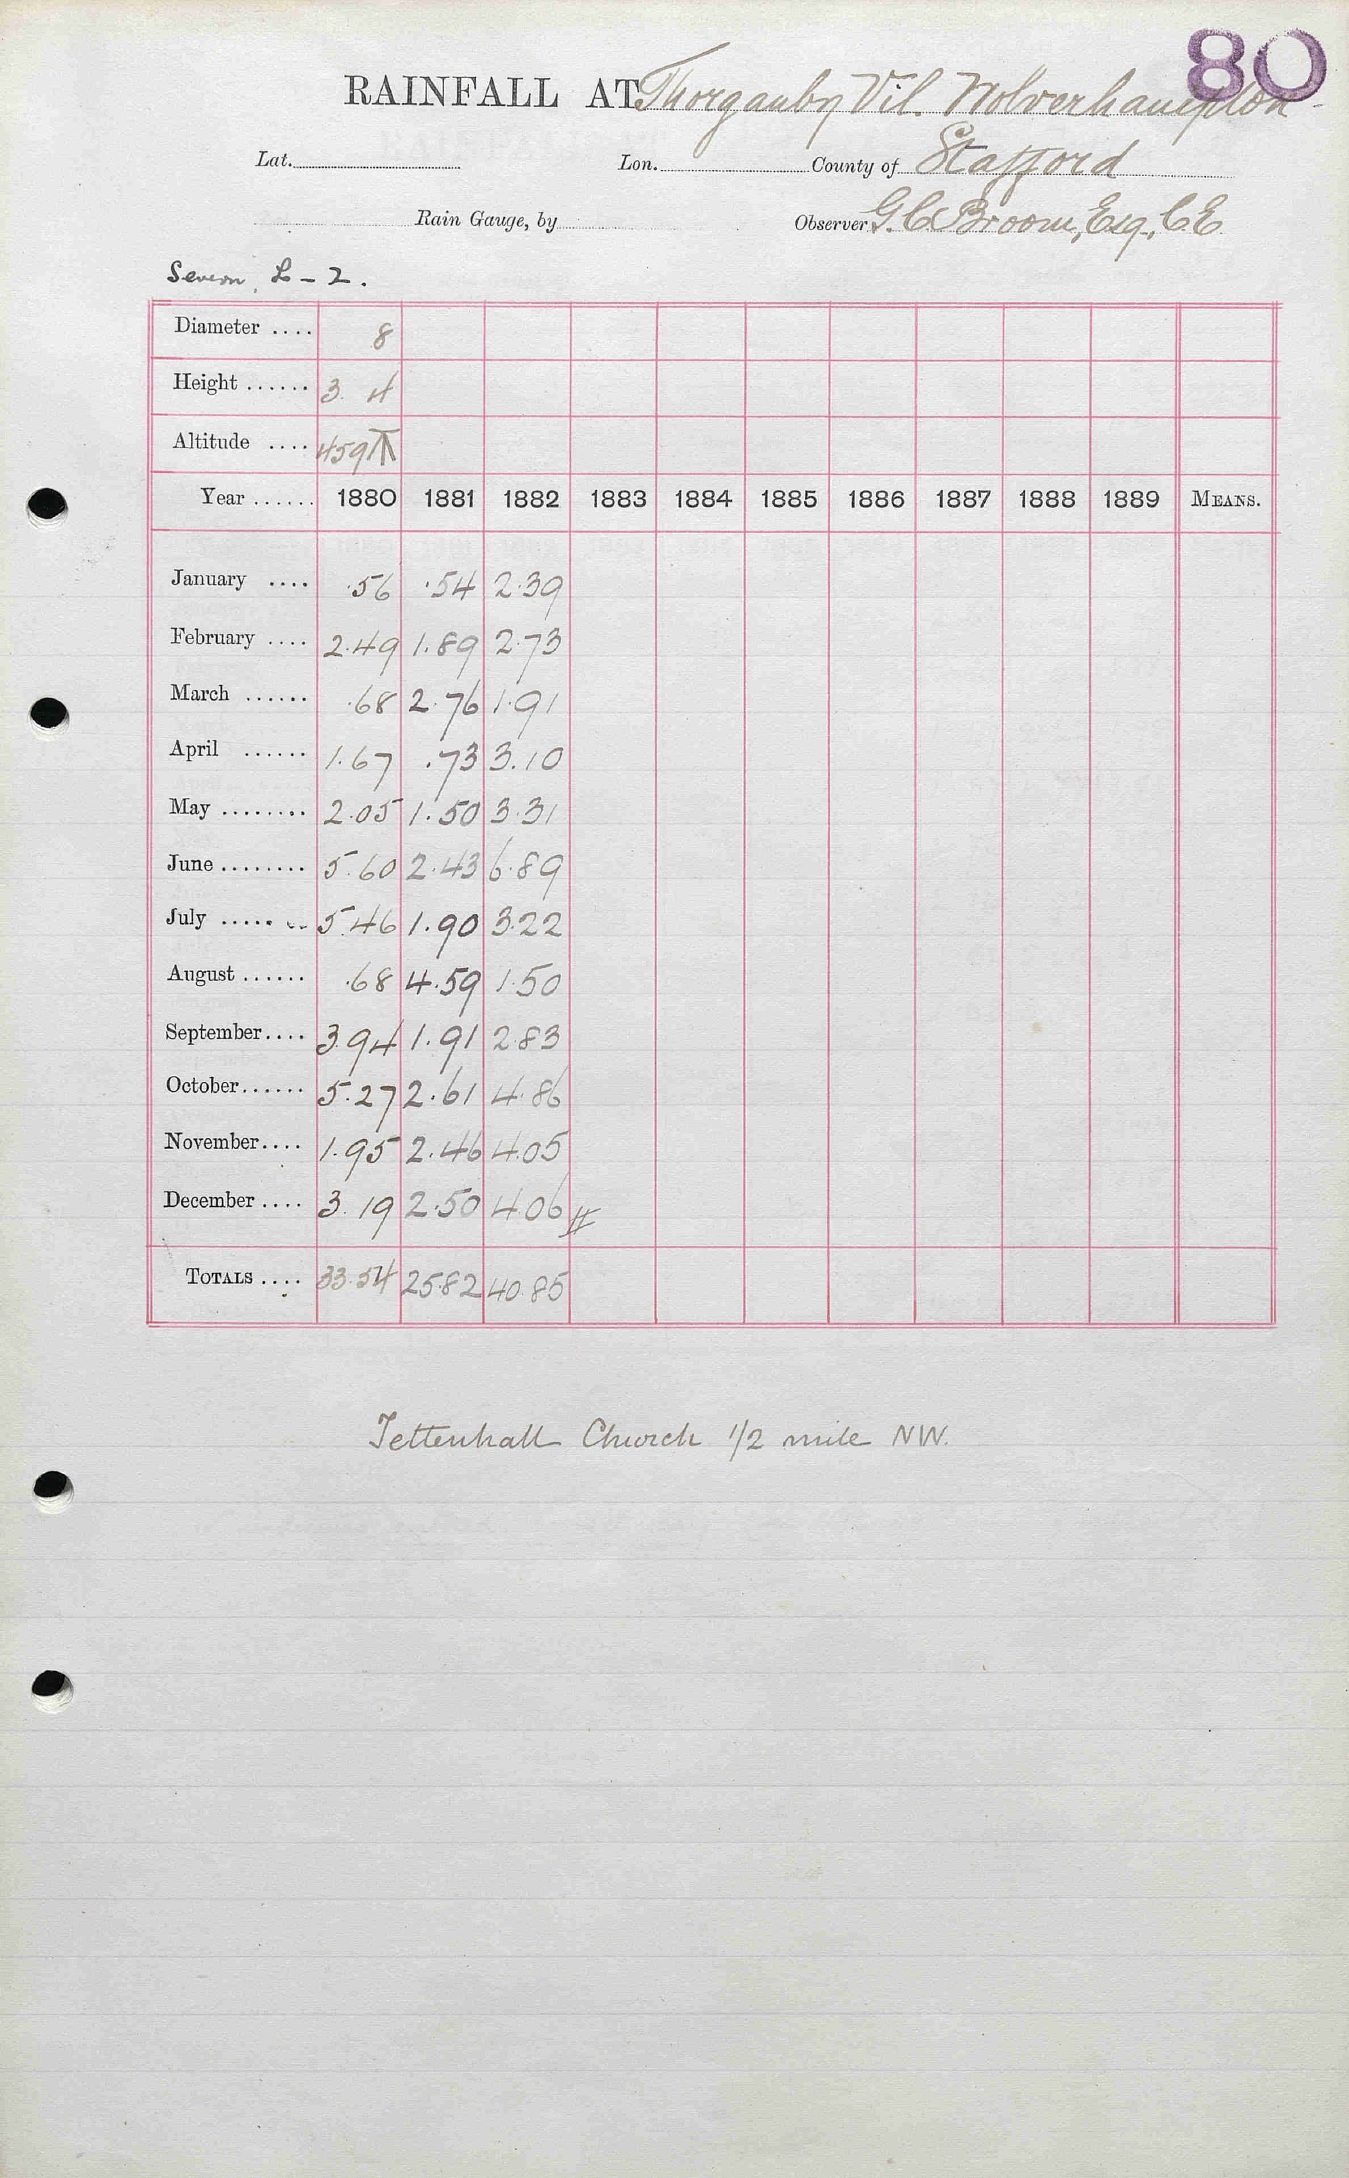 80
RAINFALL AT Thorganby Vil. Wolverhampton
Lat. Lon. County of Stafford
Rain Gauge, by Observer G. C. Broom, Esq., C E
Severn, L - 2.
Diameter .... 8
Height ...... 3. 4
Altitude .... 459
Year ...... 1880 1881 1882 1883 1884 1885 1886 1887 1888 1889 MEANS.
January .... .56 .54 2.39
February .... 2.49 1.89 2.73
March ...... .68 2.76 1.91
April ...... 1.67 .73 3.10
May ........ 2.05 1.50 3.31
June ........ 5.60 2.43 6.89
July ........ 5.46 1.90 3.22
August ...... .68 4.59 1.50
September.... 3.94 1.91 2.83
October...... 5.27 2.61 4.86
November.... 1.95 2.46 4.05
December .... 3.19 2.50 4.06
TOTALS .... 33.54 25.82 40.85
Tettenhall Church 1/2 mile NW.